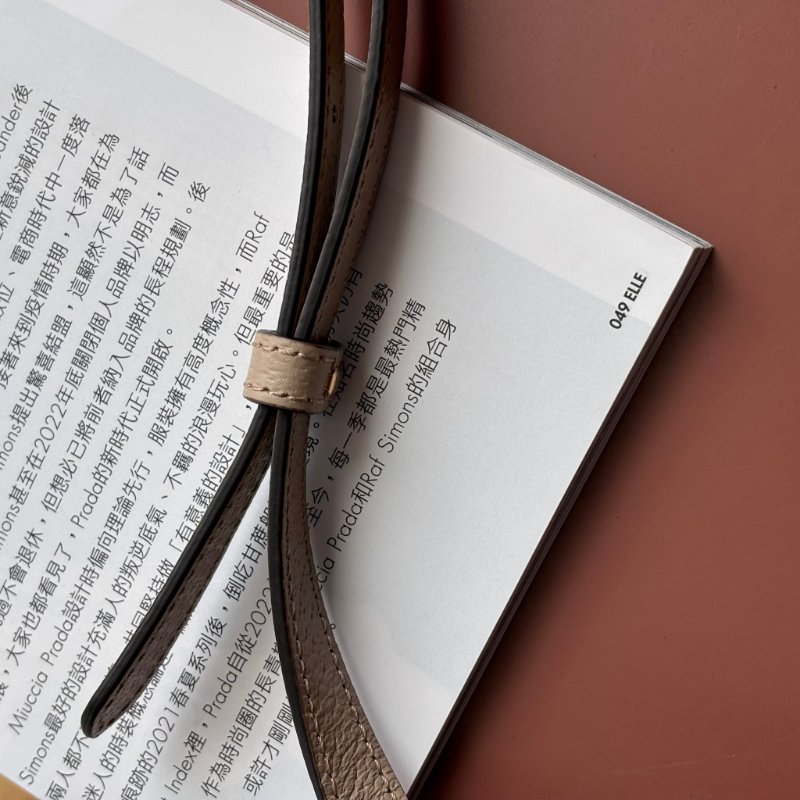 ander後
新意銳減的設計
位、電商時代中一度落
接著來到疫情時期，大家都在為
mons提出驚喜結盟，這顯然不是為了話
imons甚至在2022年底關閉個人品牌以明志，而
不會退休，但想必已將前者納入品牌的長程規劃。後
，大家也都看見了，Prada的新時代正式開啟。
Miuccia Prada設計時偏向理論先行，服裝擁有高度概念性，而Raf
Simons最好的設計充滿人的叛逆底氣、不羈的浪漫玩心。但最重要的是
兩人都不 「有意義的設計」，
迷人的時裝概念
痕跡的2021春夏系列後，倒吃甘蔗 現。在 時尚趨勢
Index裡，Prada自從2022 至今，每一季都是最熱門精
作為時尚圈的長青 Prada和Raf Simons的組合身
或許才剛剛 。
049 ELLE